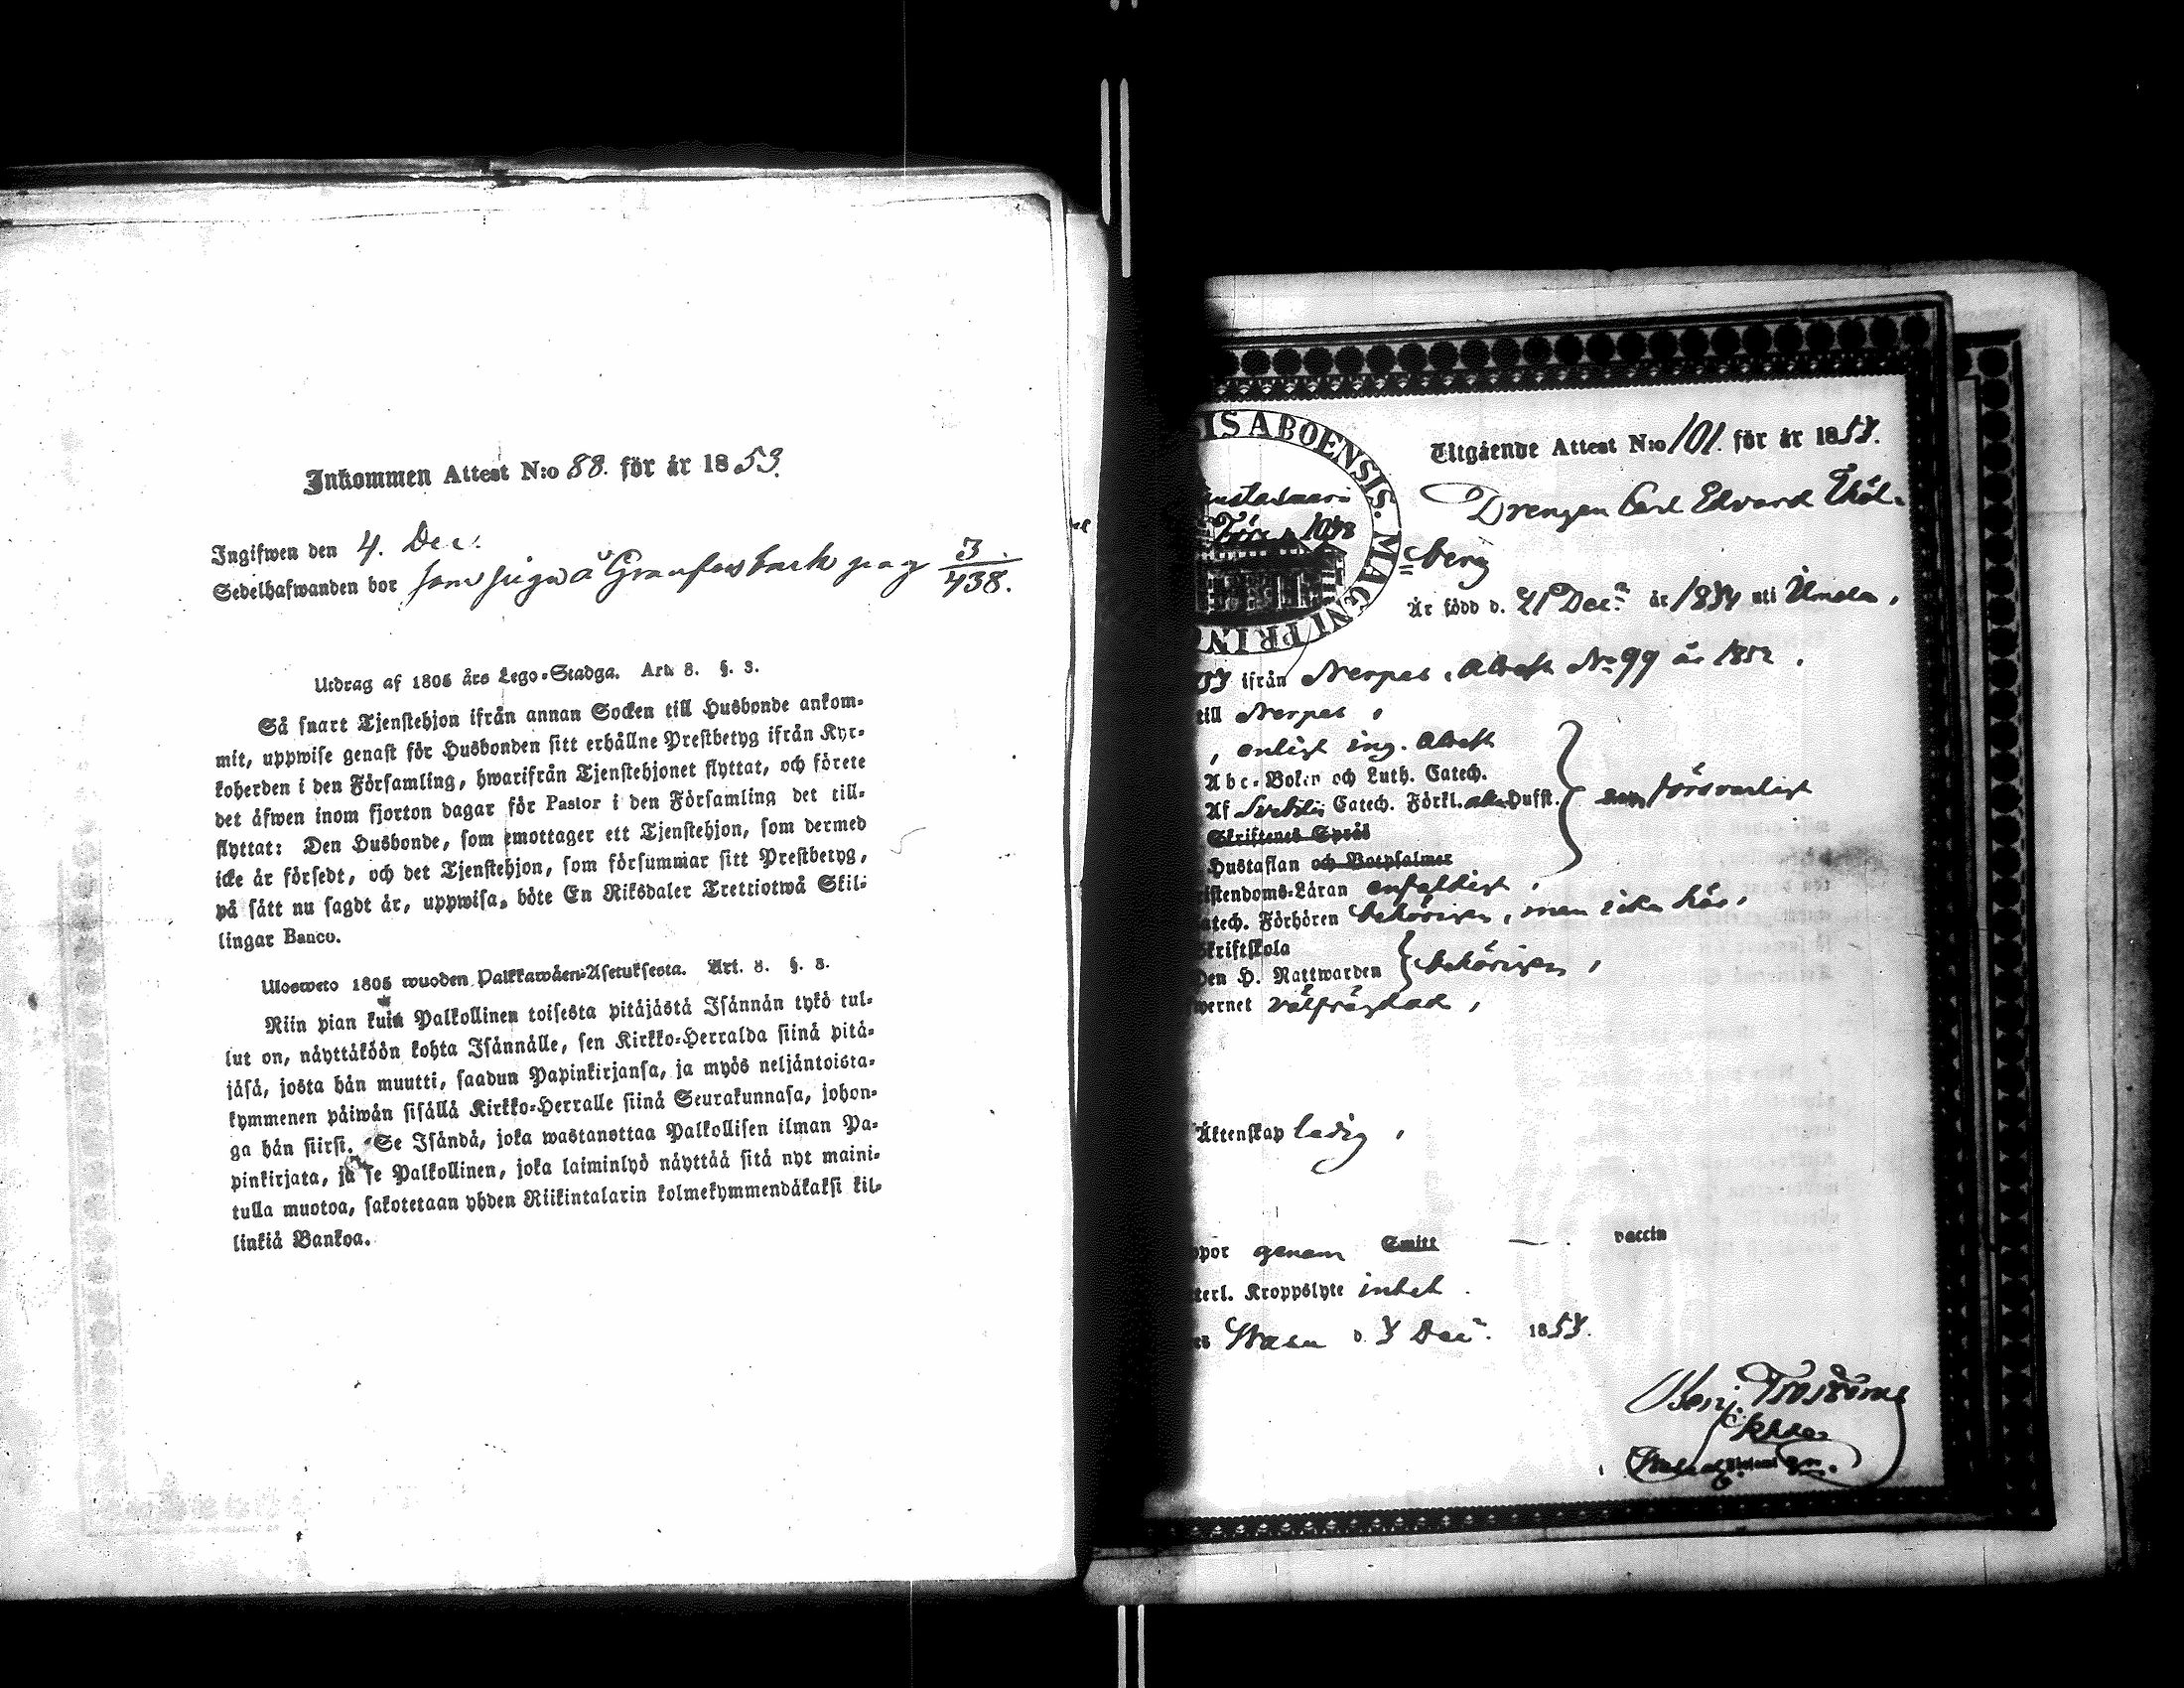 Inkommen Attest N:o 88. för år 1853.
Ingifwen den 4. Dec.
Sedelhafwanden bor som piga å pag 3/438.
Utdrag af 1805 års Lego-Stadga. Art. 8. §. 3.
Så snart Tjenstehjon ifrån annan Socken till Husbonde ankom-
mit, uppwise genast för Husbonden sitt erhållne Prestbetyg ifrån Kyr-
koherden i den Församling, hwarifrån Tjenstehjonet flyttat, och förete
det åfwen inom fjorton dagar för Pastor i den Församling det till-
flyttat: Den Husbonde, som emottager ett Tjenstehjon, som dermed
icke är försedt, och det Tjenstehjon, som försummar sitt Prestbetyg,
på sätt nu sagdt är, uppwisa, böte En Riksdaler Trettiotwå Skil-
lingar Banco.
Ulosweto 1805 wuoden Palkkawäen-Asetuksesta. Art. 8. §. 3.
Niin pian kuin Palkollinen toisesta pitäjästä Isännän tykö tul-
lut on, näyttäköön kohta Isännälle, sen Kirkko-Herralda siinä pitä-
jäsä, josta hän muutti, saadun Papinkirjansa, ja myös neljäntoista-
kymmenen päiwän sisällä Kirkko-Herralle siinä Seurakunnasa, johon-
ga hän siirsi. Se Isändä, joka wastanottaa Palkollisen ilman Pa-
pinkirjata, ja se Palkollinen, joka laiminlyö näyttää sitä nyt maini-
tulla muotoa, sakotetaan yhden Riikintalarin kolmekymmendäkaksi kil-
linkiä Bankoa.
IS ABOENSIS. MAGNI PRIN
Utgående Attest N:o 101. för år 1853.
Drengen Carl Edvard Thöl-
berg
Är född d. 21 Dec. år 1834 uti Umeå,
53 ifrån Nerpes, Attest No 99 år 1852.
till Nerpes,
, enligt ing. Attest
Abc-Boken och Luth. Catech.
Af Svebilii Catech. Förkl. Husst. försvarligt
Skriftenes Språk
Hustaflan och Botpsalmer
istendoms-Läran enfaldigt,
atech. Förhören behörigen, men icke här,
Skriftskola
Den H. Nattwarden behörigen,
wernet välfrägdad,
Äktenskap ledig,
ppor genom Smitt — . vaccin
terl. Kroppslyte intet.
Wasa d. 3 Dec. 1853.
Benj.